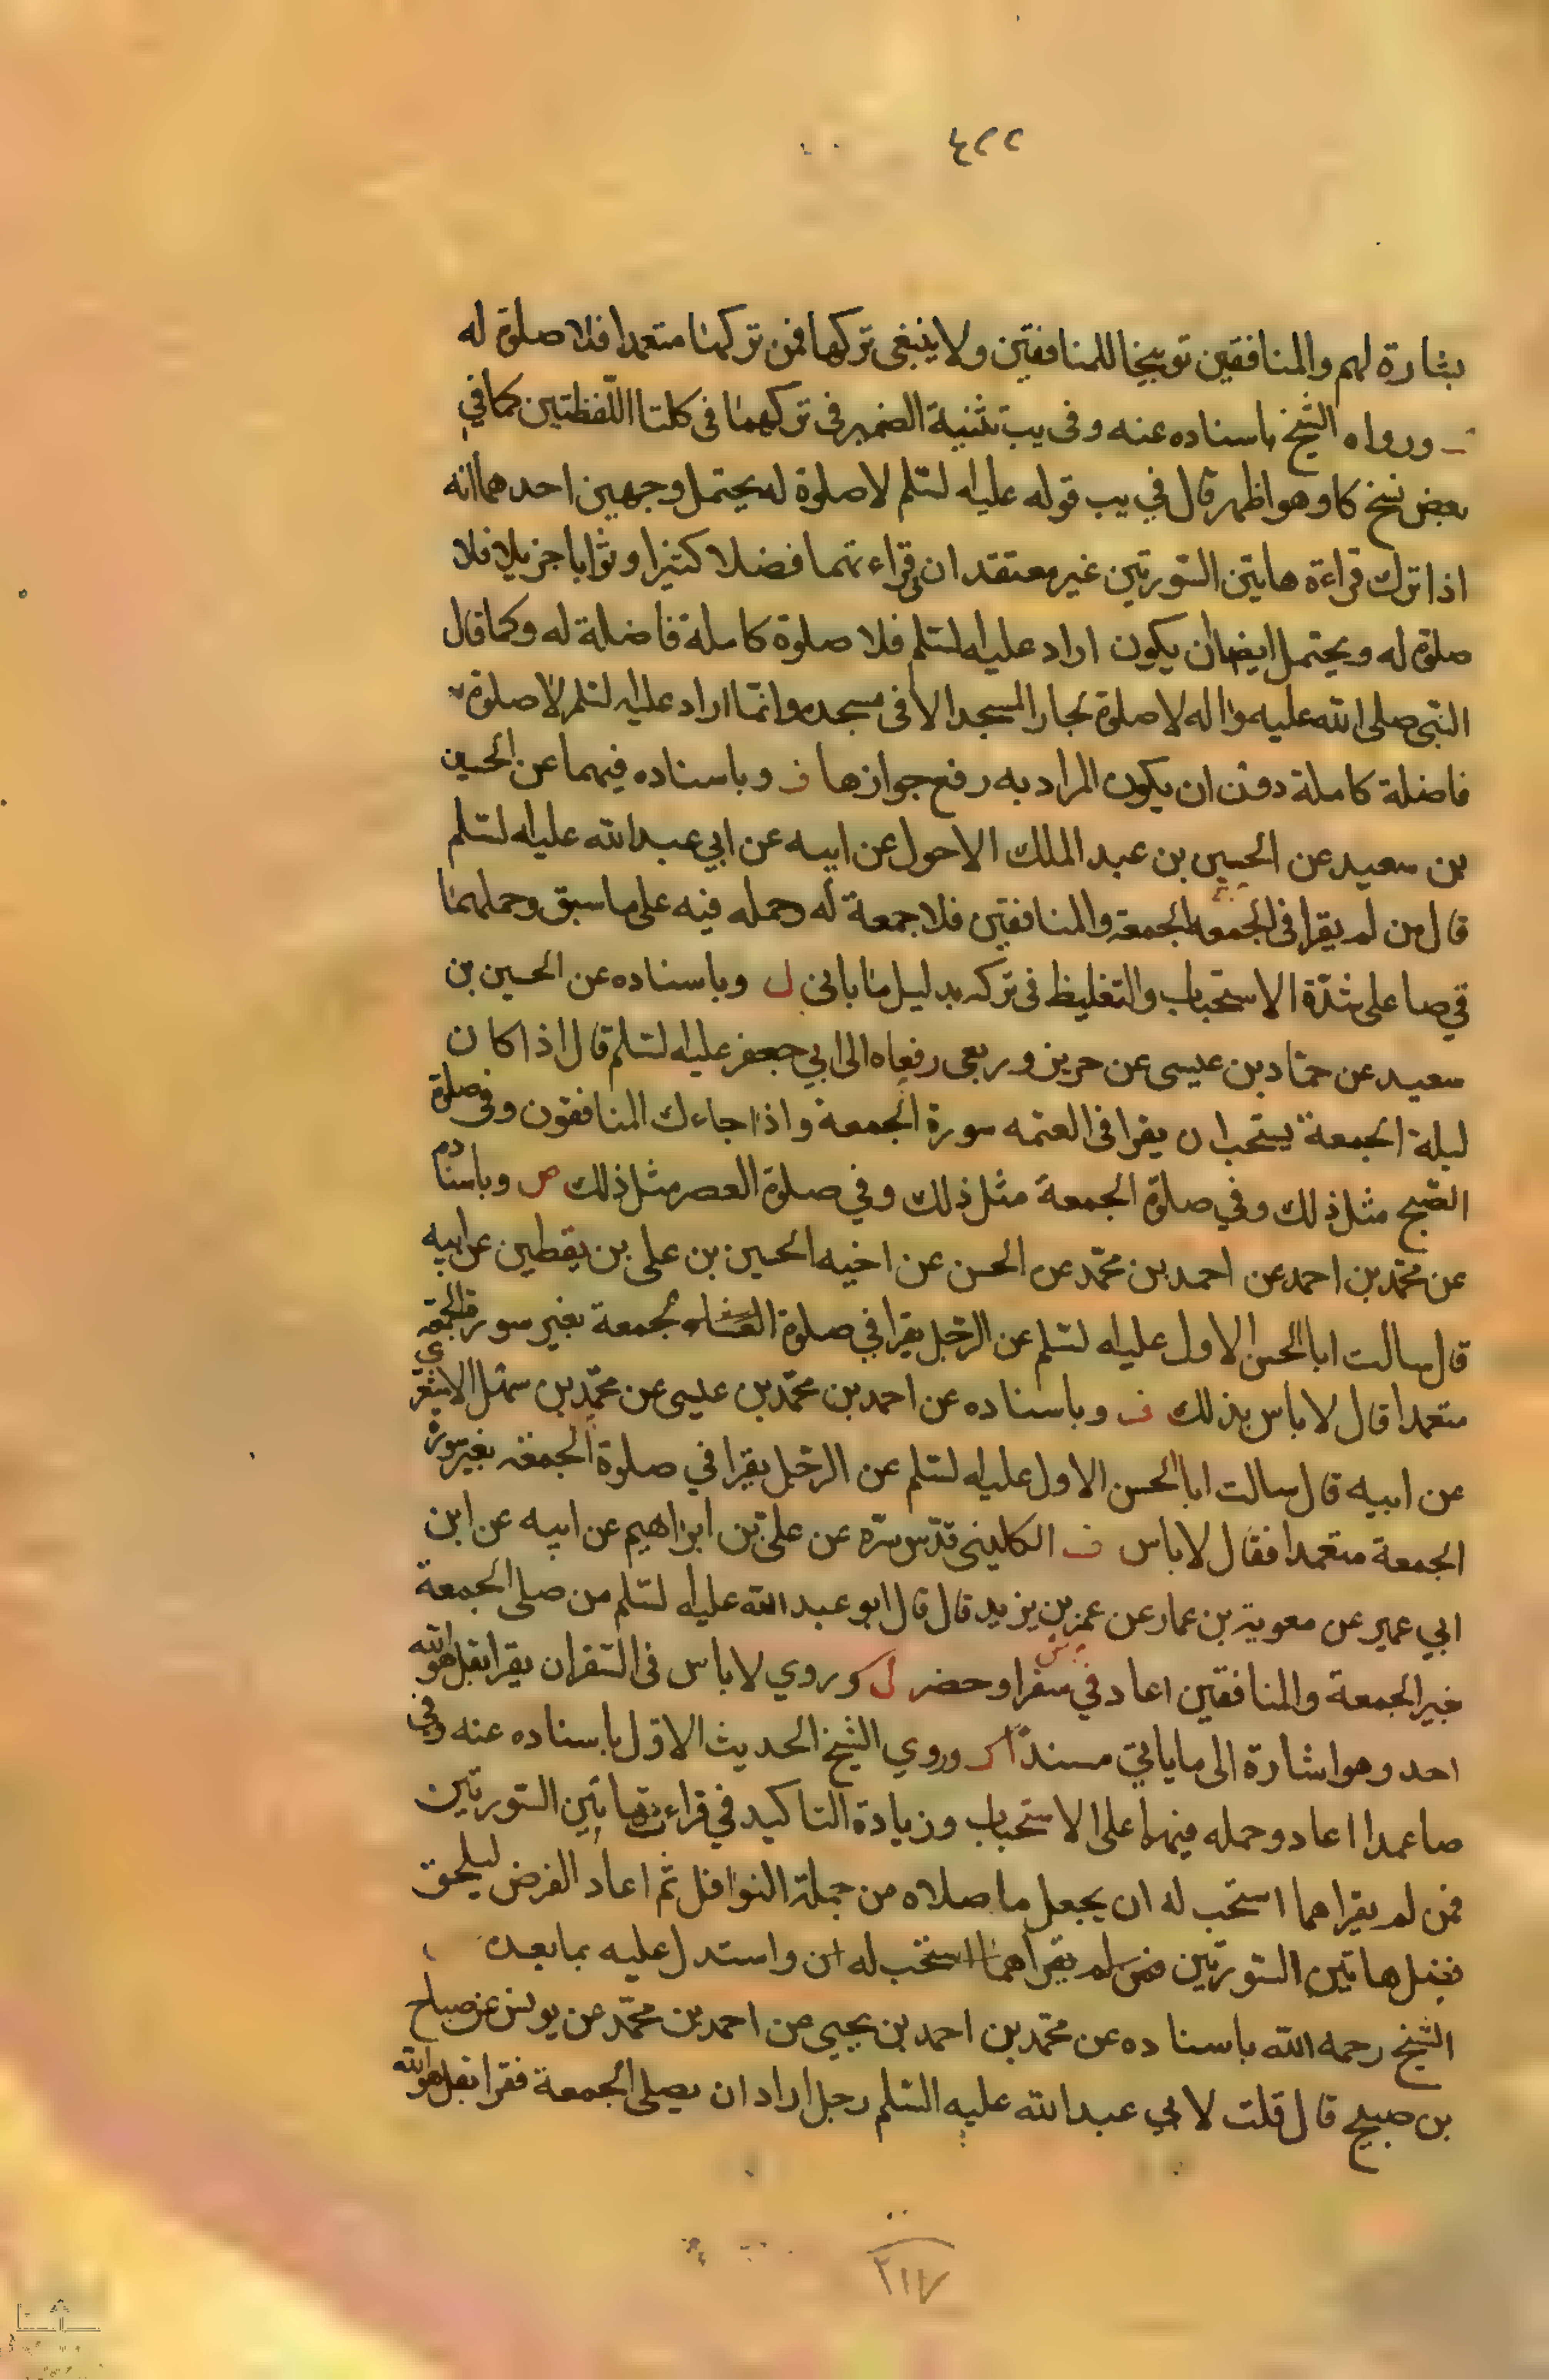 ٤٢٢
بشارة لهم والمنافقين توبيخا للمنافقين ولا ينبغى تركها فمن تركهنا متعمدا فلا صلوة له
ورواه الشيخ باسناده عنه وفى يب تثنية الضمير فى تركهما فى كلتا اللفظتين كما في
بعض نسخ كا وهو اظهر قال في يب قوله عليه لسلم لا صلوة له يحتمل وجهين احدهما انه
اذا ترك قراءة هاتين السورتين غير معتقد ان في قراءتهما فضلا كثيرا وثوابا جزيلا فلا
صلوة له ويحتمل ايضا ان يكون اراد عليه لسلم فلا صلوة كاملة فاضلة له وكما قال
النبى صلى الله عليه واله لا صلوة لجار المسجد الا فى مسجده وانما اراد عليه لسلم لا صلوة
فاضلة كاملة دون ان يكون المراد به رفع جوازها ف وباسناده فيهما عن الحسين
بن سعيد عن الحسين بن عبد الملك الاحول عن ابيه عن ابي عبد الله عليه لسلم
قال من لم يقرا فى الجمعه الجمعة والمنافقين فلا جمعة له وحمله فيه على ما سبق وحملهما
في صا على شدة الاستحباب والتغليظ فى تركه بدليل ما ياتى ل وباسناده عن الحسين بن
سعيد عن حماد بن عيسى عن حريز وربعى رفعاه الى ابي جعفر عليه لسلم قال اذا كان
ليلة الجمعة يستحب ان يقرا فى العتمه سورة الجمعة واذا جاءك المنافقون وفى صلوة
الصبح مثل ذلك وفي صلوة الجمعة مثل ذلك وفي صلوة العصر مثل ذلك ص وباسناده
عن محمد بن احمد عن احمد بن محمد عن الحسن عن اخيه الحسين بن على بن يقطين عن ابيه
قال سالت ابا الحسن الاول عليه لسلم عن الرجل يقرا في صلوة الجمعة بغير سورة الجمعة
متعمدا قال لا باس بذلك ف وباسناده عن احمد بن محمد بن عيسى عن محمد بن سهل الاشعري
عن ابيه قال سالت ابا الحسن الاول عليه لسلم عن الرجل يقرا في صلوة الجمعة بغير سورة
الجمعة متعمدا فقال لا باس ف الكلينى قدس سره عن على بن ابراهيم عن ابيه عن ابن
ابي عمير عن معوية بن عمار عن عمر بن يزيد قال قال ابو عبد الله عليه لسلم من صلى الجمعة
بغير الجمعة والمنافقين اعاد في سفر او حضر ل وروي لا باس فى السفر ان يقرا بقل هو الله
احد وهو اشارة الى ما ياتي مسندا وروي الشيخ الحديث الاول باسناده عنه وفي
صا عمدا اعاد وحمله فيهما على الاستحباب وزيادة التاكيد في قراءة هاتين السورتين
فمن لم يقراهما استحب له ان يجعل ما صلاه من جملة النوافل ثم اعاد الفرض ليلحق
بفضل هاتين السورتين فمن لم يقراهما استحب له ان واستدل عليه بما بعده
الشيخ رحمه الله باسناده عن محمد بن احمد بن يحيى عن احمد بن محمد عن يونس عن صباح
بن صبيح قال قلت لابي عبد الله عليه السلم رجل اراد ان يصلى الجمعة فقرا بقل هو الله
٢١٧